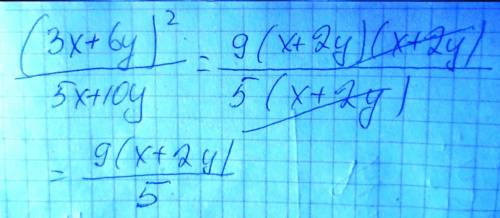 (3x+6y)² / 5x+10y = 9(x+2y)(x+2y) / 5(x+2y)
= 9(x+2y) / 5